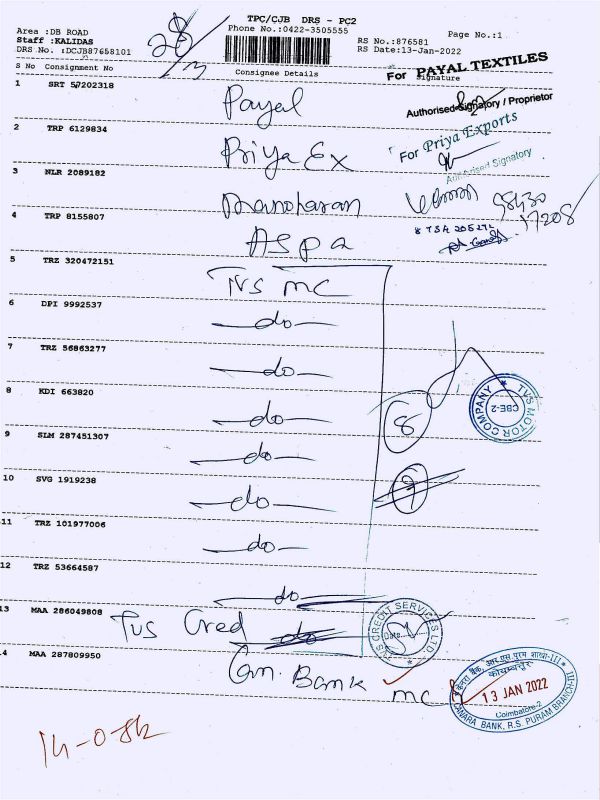 TPC/CJB DRS - PC2
Area :DB ROAD
Phone No.:0422-3505555
Page No.:1
Staff :KALIDAS
RS No.:876581
DRS No. :DCJB87658101
RS Date:13-Jan-2022
28/3
S No Consignment No
Consignee Details
Signature
For PAYAL TEXTILES
1 SRT 57202318
Payal
Authorised Signatory / Proprietor
2 TRP 6129834
Priya Ex
For Priya Exports
Authorised Signatory
3 NLR 2089182
Manoharan
98430
17208
4 TRP 8155807
Aspa
5 TRZ 320472151
TVS MC
6 DPI 9992537
do
7 TRZ 56863277
do
8 KDI 663820
do
8
TVS MOTOR COMPANY
CBE-2
9 SLM 287451307
do
10 SVG 1919238
do
9
11 TRZ 101977006
do
12 TRZ 53664587
do
13 MAA 286049808
TVS Cred
do
TVS CREDIT SERVICES LTD
Date
14 MAA 287809950
Can. Bank
mc
केनरा बैंक, आर.एस पुरम शाखा-III
कोयम्बत्तूर
13 JAN 2022
Coimbatore-2
CANARA BANK, R.S. PURAM BRANCH-III
14-0-8k